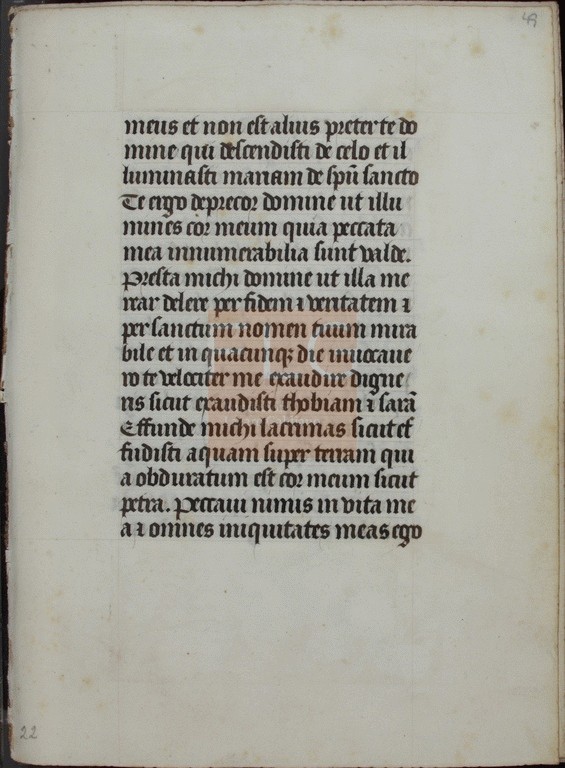 49
meus et non est alius preter te do
mine qui descendisti de celo et il
luminasti mariam de spū sancto
Te ergo deprecor domine ut illu
mines cor meum quia peccata
mea innumerabilia sunt valde.
Presta michi domine ut illa me
rear delere per fidem ⁊ veritatem ⁊
per sanctum nomen tuum mira
bile et in quacunqꝫ die invocave
ro te velociter me exaudire digne
ris sicut exaudisti thobiam ⁊ sarā
Effunde michi lacrimas sicut ef
fudisti aquam super terram qui
a obduratum est cor meum sicut
petra. Peccavi nimis in vita me
a ⁊ omnes iniquitates meas ego
22